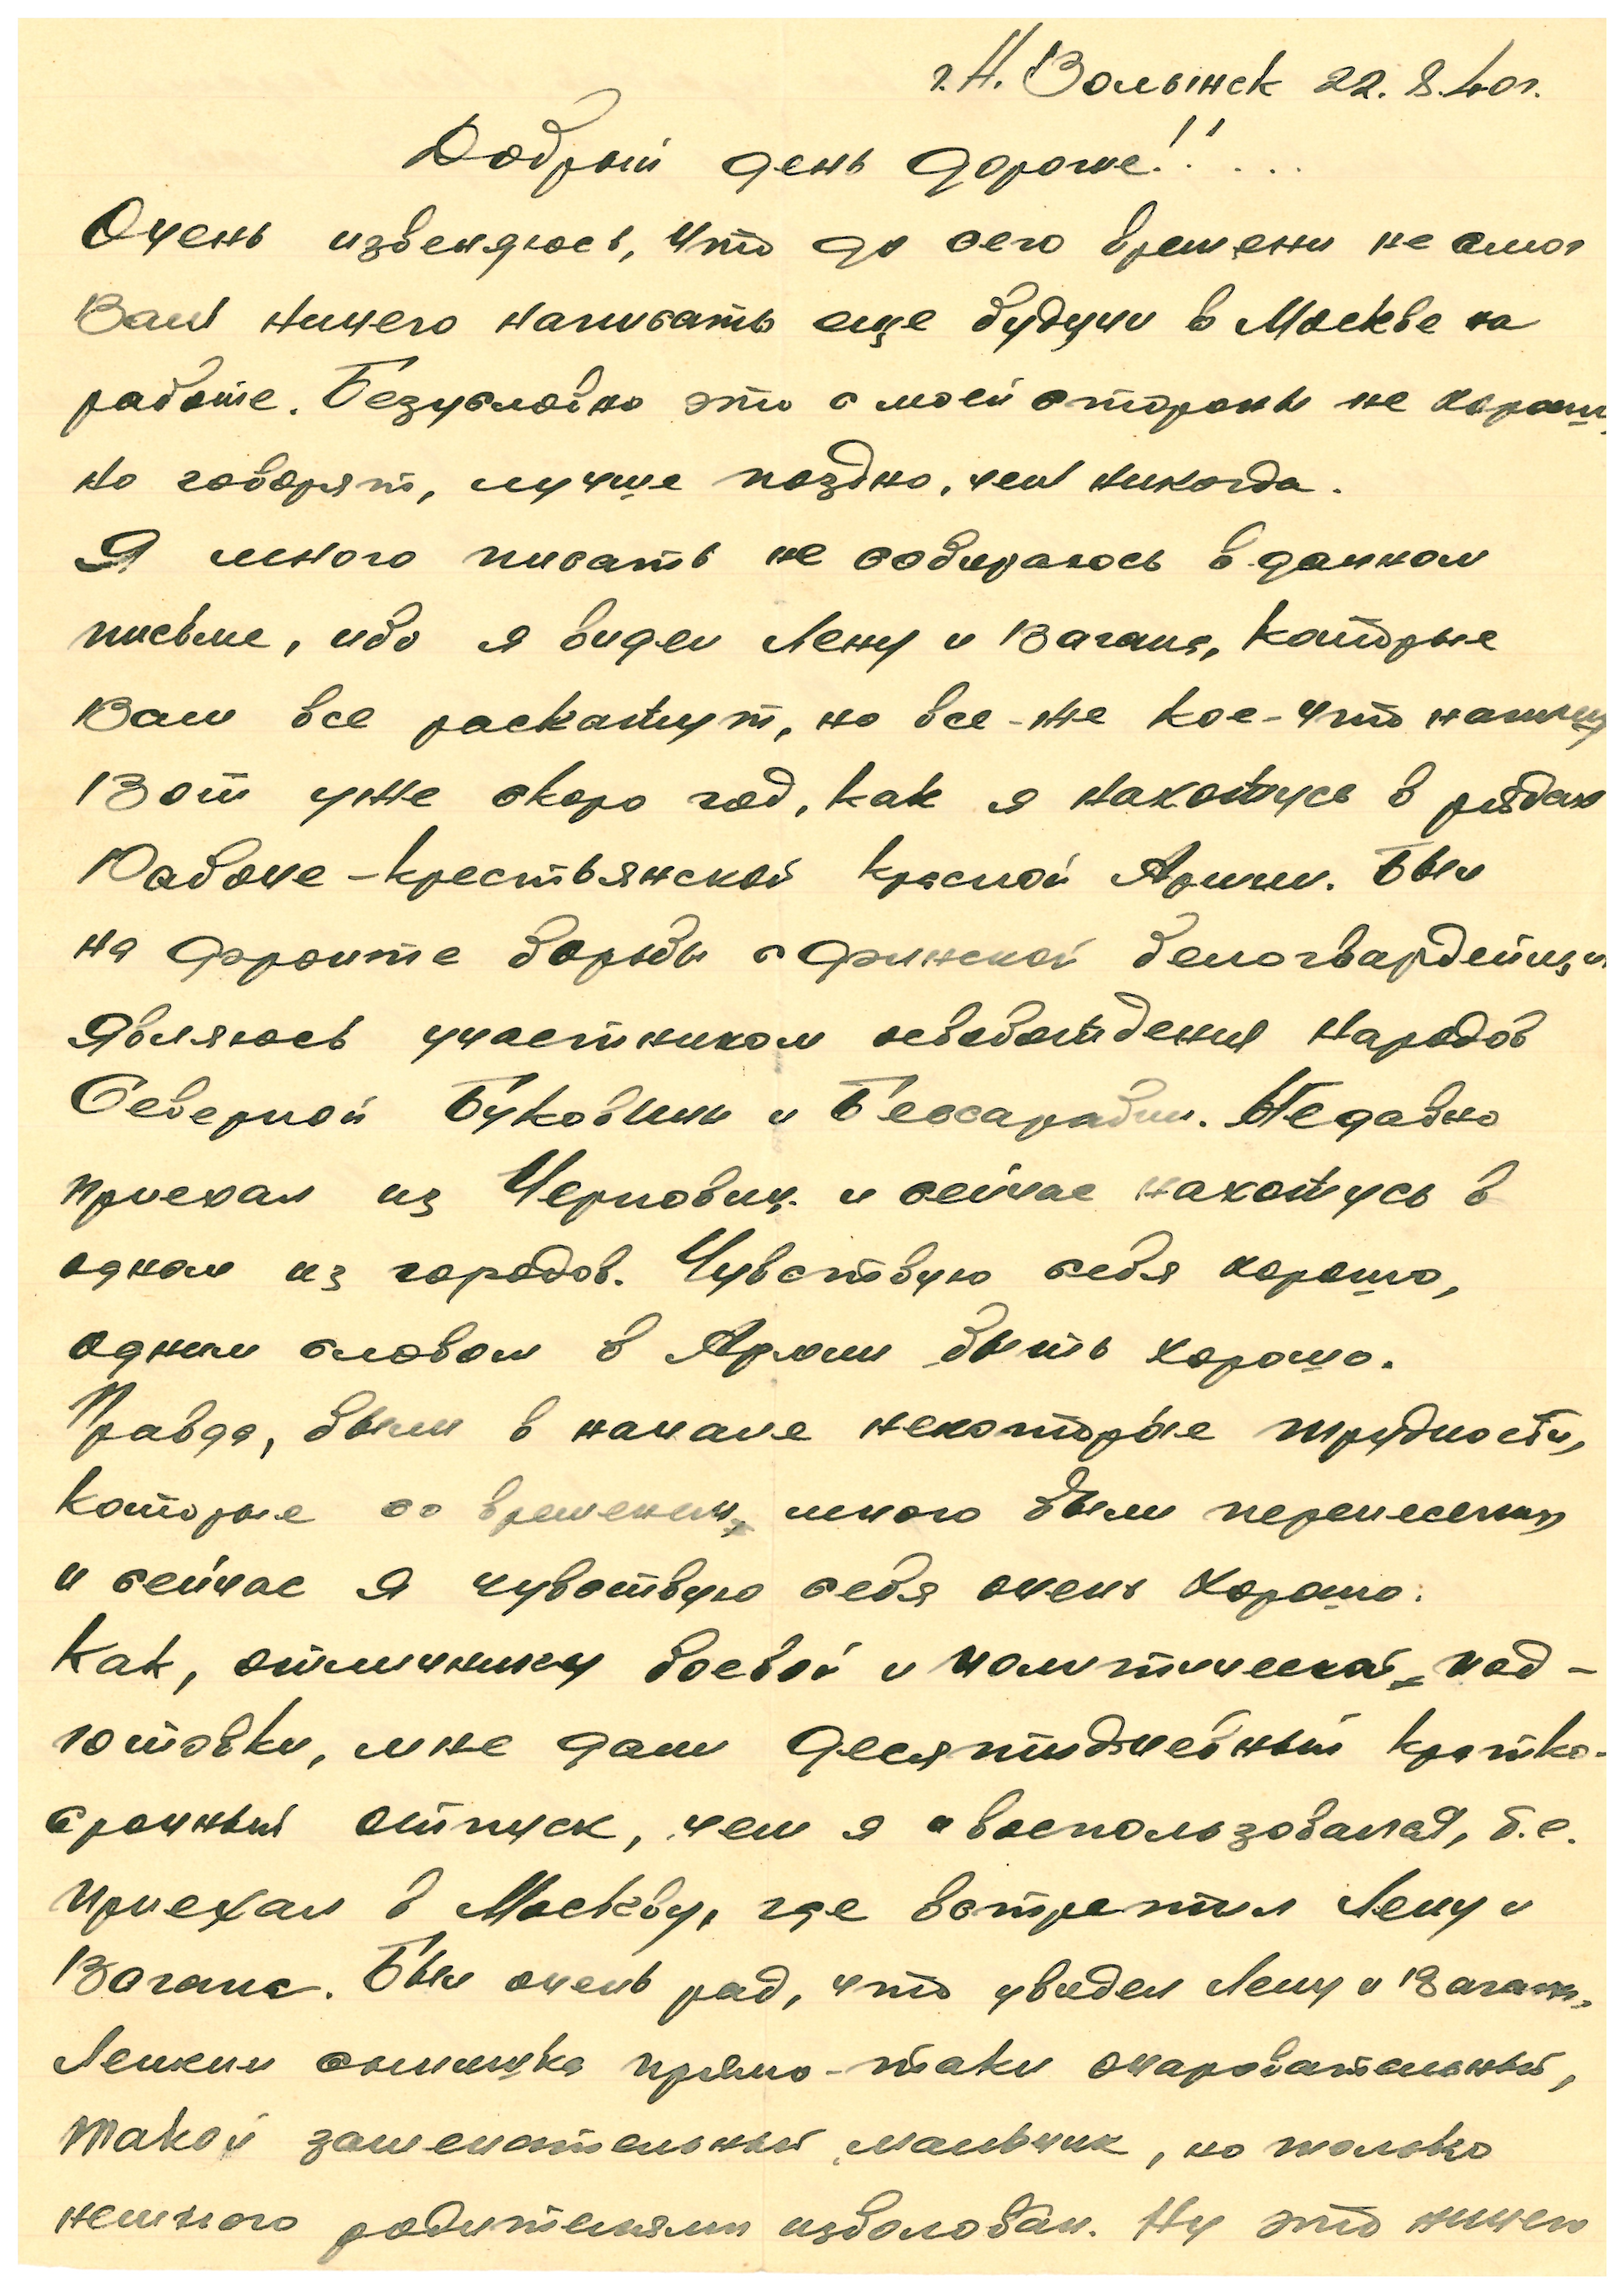 г. Н. Волынск 22.8.40г.
Добрый день дорогие!! ...
Очень извеняюсь, что до сего времени не смог
Вам ничего написать еще будучи в Москве на
работе. Безусловно это с моей стороны не хорошо,
но говорят, лучше поздно, чем никогда.
Я много писать не собираюсь в данном
письме, ибо я видел Лену и Вагана, которые
Вам все раскажут, но все-же кое-что напишу
Вот уже скоро год, как я нахожусь в рядах
Рабоче-крестьянской Красной Армии. Был
на фронте борьбы с финской белогвардейщи
Являюсь участником освобождения народов
Северной Буковины и Бессарабии. Недавно
приехал из Черновиц и сейчас нахожусь в
одном из городов. Чувствую себя хорошо,
одним словом в Армии быть хорошо.
Правда, были в начале некоторые трудности,
которые со временем мною были перенесены
и сейчас я чувствую себя очень хорошо.
Как, отличнику боевой и политической под-
готовки, мне дали десятидневный кратко-
срочный отпуск, чем я и воспользовался, т.е.
приехал в Москву, где встретил Лену и
Вагана. Был очень рад, что увидел Лену и Вагана.
Ленкин сынишка прямо-таки очаровательный,
такой замечательный мальчик, но только
немного родителями избалован. Ну это ничего